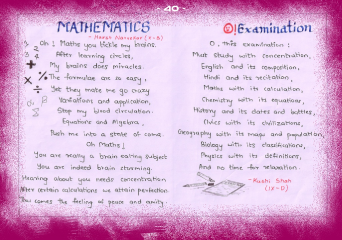 - 40 -
MATHEMATICS
Oh! Maths you tickle my brains.
After learning circles,
My brains does miracles.
The formulae are so easy,
Yet they make me go crazy
Variations and application,
Stop my blood circulation.
Equations and Algebra,
Push me into a state of coma.
Oh Maths!
You are really a brain eating subject
You are indeed brain charming.
Hearing about you needs concentration
After certain calculations we attain perfection
You comes the feeling of peace and amity.
O! Examination
O, this examination!
Must study with concentration,
English and its composition,
Hindi and its recitation,
Maths with its calculation,
Chemistry with its equations,
History and its dates and battles,
Civics with its civilizations,
Geography with its maps and population,
Biology with its classifications,
Physics with its definitions,
And no time for relaxation.
- Kashi Shah
(IX-D)